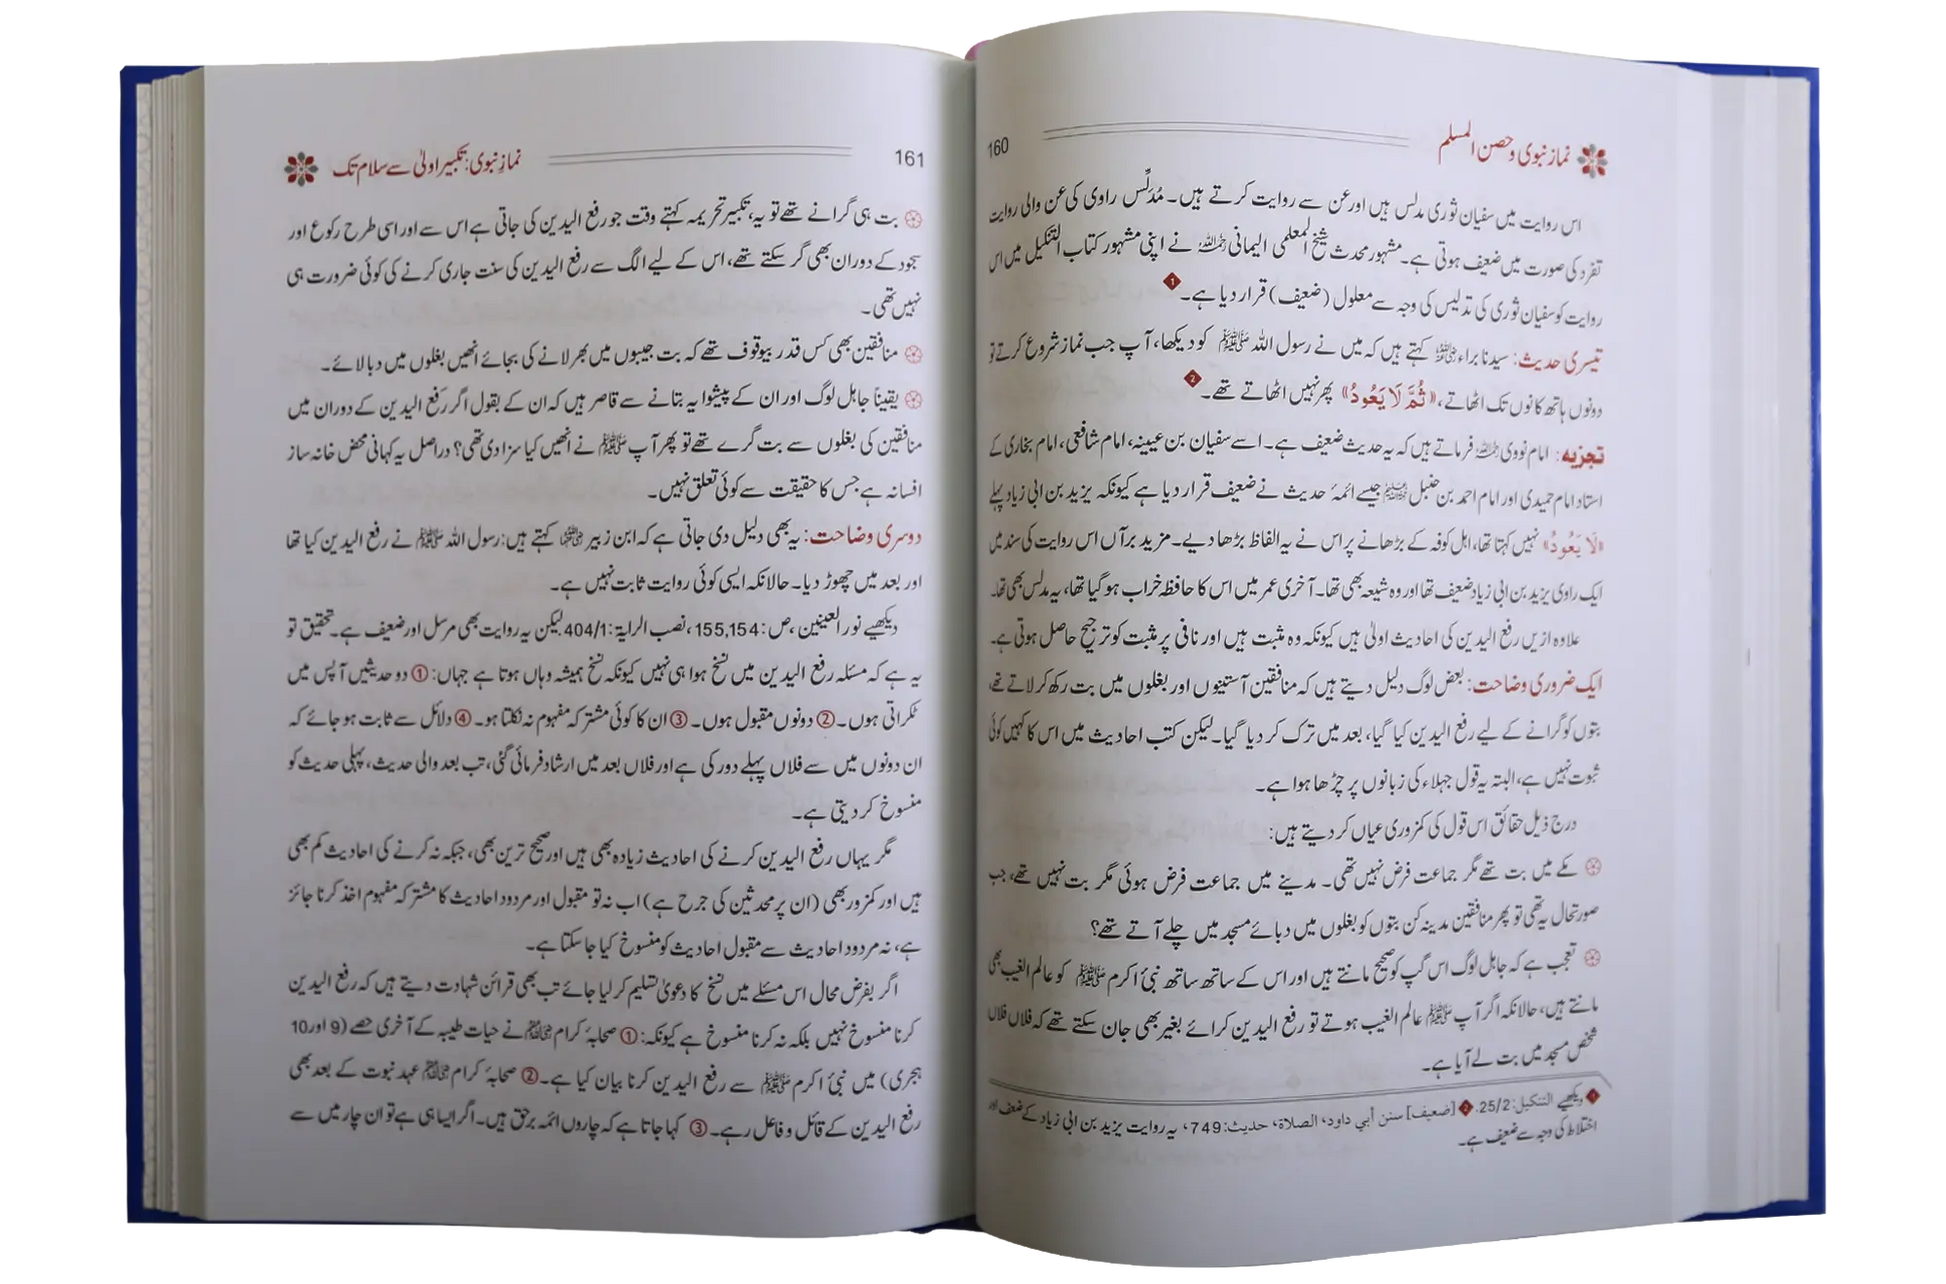 نماز نبوی و حصن المسلم 160
اس روایت میں سفیان ثوری مدلس ہیں اور عن سے روایت کرتے ہیں۔ مُدَلِّس راوی کی عن والی روایت
تفرد کی صورت میں ضعیف ہوتی ہے۔ مشہور محدث شیخ المعلمی الیمانی رحمہ اللہ نے اپنی مشہور کتاب التنکیل میں اس
روایت کو سفیان ثوری کی تدلیس کی وجہ سے معلول (ضعیف) قرار دیا ہے۔ 1
تیسری حدیث: سیدنا براء رضی اللہ عنہ کہتے ہیں کہ میں نے رسول اللہ ﷺ کو دیکھا، آپ جب نماز شروع کرتے تو
دونوں ہاتھ کانوں تک اٹھاتے، «ثُمَّ لَا يَعُودُ» پھر نہیں اٹھاتے تھے۔ 2
تجزیہ: امام نووی رحمہ اللہ فرماتے ہیں کہ یہ حدیث ضعیف ہے۔ اسے سفیان بن عیینہ، امام شافعی، امام بخاری کے
استاد امام حمیدی اور امام احمد بن حنبل رحمہم اللہ جیسے ائمۂ حدیث نے ضعیف قرار دیا ہے کیونکہ یزید بن ابی زیاد پہلے
«لَا يَعُودُ» نہیں کہتا تھا، اہل کوفہ کے بڑھانے پر اس نے یہ الفاظ بڑھا دیے۔ مزید برآں اس روایت کی سند میں
ایک راوی یزید بن ابی زیاد ضعیف تھا اور وہ شیعہ بھی تھا۔ آخری عمر میں اس کا حافظہ خراب ہو گیا تھا، یہ مدلس بھی تھا۔
علاوہ ازیں رفع الیدین کی احادیث اولیٰ ہیں کیونکہ وہ مثبت ہیں اور نافی پر مثبت کو ترجیح حاصل ہوتی ہے۔
ایک ضروری وضاحت: بعض لوگ دلیل دیتے ہیں کہ منافقین آستینوں اور بغلوں میں بت رکھ کر لاتے تھے،
بتوں کو گرانے کے لیے رفع الیدین کیا گیا، بعد میں ترک کر دیا گیا۔ لیکن کتب احادیث میں اس کا کہیں کوئی
ثبوت نہیں ہے، البتہ یہ قول جہلاء کی زبانوں پر چڑھا ہوا ہے۔
درج ذیل حقائق اس قول کی کمزوری عیاں کر دیتے ہیں:
مکے میں بت تھے مگر جماعت فرض نہیں تھی۔ مدینے میں جماعت فرض ہوئی مگر بت نہیں تھے، جب
صورتحال یہ تھی تو پھر منافقین مدینہ کن بتوں کو بغلوں میں دبائے مسجد میں چلے آتے تھے؟
تعجب ہے کہ جاہل لوگ اس گپ کو صحیح مانتے ہیں اور اس کے ساتھ ساتھ نبیٔ اکرم ﷺ کو عالم الغیب بھی
مانتے ہیں، حالانکہ اگر آپ ﷺ عالم الغیب ہوتے تو رفع الیدین کرائے بغیر بھی جان سکتے تھے کہ فلاں فلاں
شخص مسجد میں بت لے آیا ہے۔
1 دیکھیے التنکیل: 25/2. 2 [ضعیف] سنن أبي داود، الصلاة، حدیث: 749، یہ روایت یزید بن ابی زیاد کے ضعف اور
اختلاط کی وجہ سے ضعیف ہے۔
نمازِ نبوی: تکبیر اولیٰ سے سلام تک 161
بت ہی گرانے تھے تو یہ، تکبیر تحریمہ کہتے وقت جو رفع الیدین کی جاتی ہے اس سے اور اسی طرح رکوع اور
سجود کے دوران بھی گر سکتے تھے، اس کے لیے الگ سے رفع الیدین کی سنت جاری کرنے کی کوئی ضرورت ہی
نہیں تھی۔
منافقین بھی کس قدر بیوقوف تھے کہ بت جیبوں میں بھر لانے کی بجائے انھیں بغلوں میں دبا لائے۔
یقیناً جاہل لوگ اور ان کے پیشوا یہ بتانے سے قاصر ہیں کہ ان کے بقول اگر رفع الیدین کے دوران میں
منافقین کی بغلوں سے بت گرے تھے تو پھر آپ ﷺ نے انھیں کیا سزا دی تھی؟ دراصل یہ کہانی محض خانہ ساز
افسانہ ہے جس کا حقیقت سے کوئی تعلق نہیں۔
دوسری وضاحت: یہ بھی دلیل دی جاتی ہے کہ ابن زبیر رضی اللہ عنہما کہتے ہیں: رسول اللہ ﷺ نے رفع الیدین کیا تھا
اور بعد میں چھوڑ دیا۔ حالانکہ ایسی کوئی روایت ثابت نہیں ہے۔
دیکھیے نور العینین، ص: 155,154، نصب الرایۃ: 404/1 لیکن یہ روایت بھی مرسل اور ضعیف ہے۔ تحقیق تو
یہ ہے کہ مسئلہ رفع الیدین میں نسخ ہوا ہی نہیں کیونکہ نسخ ہمیشہ وہاں ہوتا ہے جہاں: ① دو حدیثیں آپس میں
ٹکراتی ہوں۔ ② دونوں مقبول ہوں۔ ③ ان کا کوئی مشترکہ مفہوم نہ نکلتا ہو۔ ④ دلائل سے ثابت ہو جائے کہ
ان دونوں میں سے فلاں پہلے دور کی ہے اور فلاں بعد میں ارشاد فرمائی گئی، تب بعد والی حدیث، پہلی حدیث کو
منسوخ کر دیتی ہے۔
مگر یہاں رفع الیدین کرنے کی احادیث زیادہ بھی ہیں اور صحیح ترین بھی، جبکہ نہ کرنے کی احادیث کم بھی
ہیں اور کمزور بھی (ان پر محدثین کی جرح ہے) اب نہ تو مقبول اور مردود احادیث کا مشترکہ مفہوم اخذ کرنا جائز
ہے، نہ مردود احادیث سے مقبول احادیث کو منسوخ کیا جا سکتا ہے۔
اگر بفرض محال اس مسئلے میں نسخ کا دعویٰ تسلیم کر لیا جائے تب بھی قرائن شہادت دیتے ہیں کہ رفع الیدین
کرنا منسوخ نہیں بلکہ نہ کرنا منسوخ ہے کیونکہ: ① صحابۂ کرام رضی اللہ عنہم نے حیات طیبہ کے آخری حصے (9 اور 10
ہجری) میں نبیٔ اکرم ﷺ سے رفع الیدین کرنا بیان کیا ہے۔ ② صحابۂ کرام رضی اللہ عنہم عہد نبوت کے بعد بھی
رفع الیدین کے قائل و فاعل رہے۔ ③ کہا جاتا ہے کہ چاروں ائمہ برحق ہیں۔ اگر ایسا ہی ہے تو ان چار میں سے